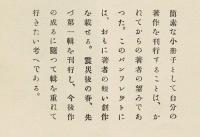 簡素な小冊子として自分の
著作を刊行することは、か
ねてからの著者の望みであ
つた。このパンフレツトに
は、おもに著者の短い創作
を載せる。震災後の春、先
づ第一輯を刊行し、今後作
の成るに隨つて輯を重ねて
行きたい考へである。